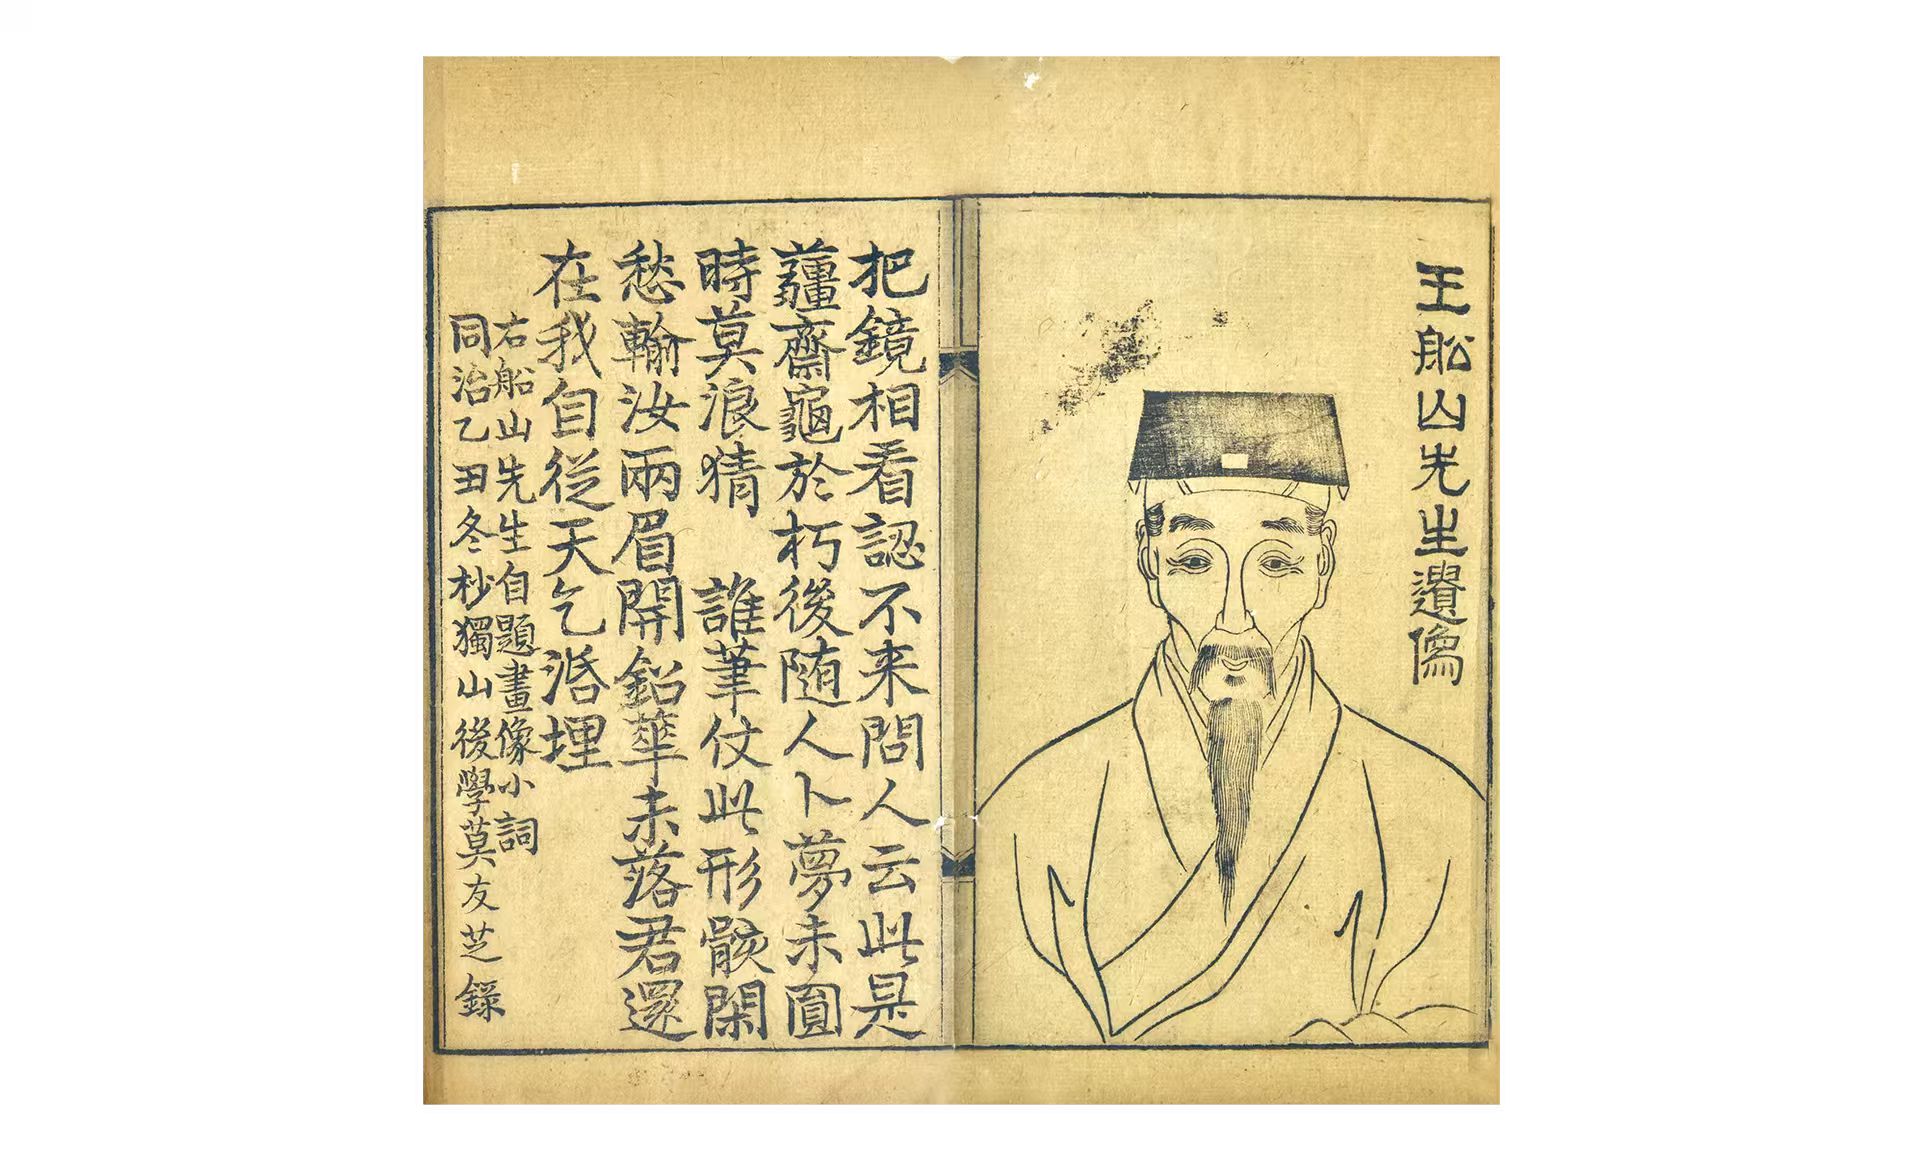 王船山先生遺像
把鏡相看認不来問人云此是
薑齋龜於朽後随人卜夢未圓
時莫浪猜 誰筆仗此形骸閑
愁輸汝兩眉開鉛華未落君還
在我自從天乞活埋
右船山先生自題畫像小詞
同治乙丑冬杪獨山後學莫友芝録